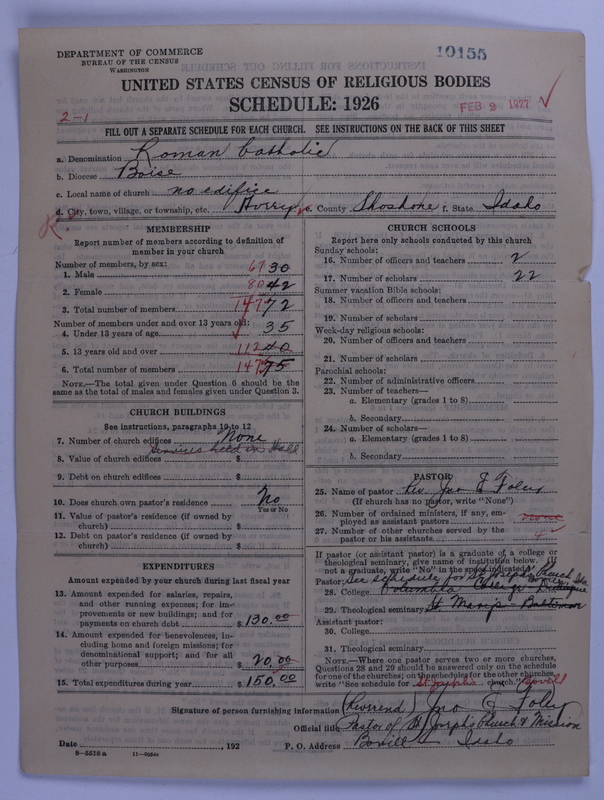 DEPARTMENT OF COMMERCE
BUREAU OF THE CENSUS
WASHINGTON
10155
UNITED STATES CENSUS OF RELIGIOUS BODIES
SCHEDULE: 1926
FEB 2 1927
2-1
FILL OUT A SEPARATE SCHEDULE FOR EACH CHURCH. SEE INSTRUCTIONS ON THE BACK OF THIS SHEET
a. Denomination Roman Catholic
b. Diocese Boise
c. Local name of church no edifice
d. City, town, village, or township, etc. e. County Shoshone f. State Idaho
MEMBERSHIP
Report number of members according to definition of
member in your church
Number of members, by sex:
1. Male 67 30
2. Female 80 42
3. Total number of members 147 72
Number of members under and over 13 years old:
4. Under 13 years of age 35
5. 13 years old and over 112 40
6. Total number of members 147 75
NOTE.—The total given under Question 6 should be
same as the total of males and females given under Question 3.
CHURCH BUILDINGS
See instructions, paragraphs 10 to 12
7. Number of church edifices None
Services held in Hall
8. Value of church edifices $
9. Debt on church edifices $
10. Does church own pastor's residence No
Yes or No
11. Value of pastor's residence (if owned by
church) $
12. Debt on pastor's residence (if owned by
church) $
EXPENDITURES
Amount expended by your church during last fiscal year
13. Amount expended for salaries, repairs,
and other running expenses; for im-
provements or new buildings; and for
payments on church debt $ 130.00
14. Amount expended for benevolences, in-
cluding home and foreign missions; for
denominational support; and for all
other purposes $ 20.00
15. Total expenditures during year $ 150.00
CHURCH SCHOOLS
Report here only schools conducted by this church
Sunday schools:
16. Number of officers and teachers 2
17. Number of scholars 22
Summer vacation Bible schools:
18. Number of officers and teachers
19. Number of scholars
Week-day religious schools:
20. Number of officers and teachers
21. Number of scholars
Parochial schools:
22. Number of administrative officers
23. Number of teachers—
a. Elementary (grades 1 to 8)
b. Secondary
24. Number of scholars—
a. Elementary (grades 1 to 8)
b. Secondary
PASTOR
25. Name of pastor Rev. Jno E Foley
(If church has no pastor, write "None")
26. Number of ordained ministers, if any, em-
ployed as assistant pastors none
27. Number of other churches served by the
pastor or his assistants 4
If pastor (or assistant pastor) is a graduate of a college or
theological seminary, give name of institution below. If
not a graduate, write "No" in the space indicated.
Pastor: See schedule for St Josephs Church
28. College Columbia College Dubuque
29. Theological seminary St Marys - Baltimore
Assistant pastor:
30. College
31. Theological seminary
NOTE.—Where one pastor serves two or more churches,
Questions 28 and 29 should be answered only on the schedule
for one of the churches; on the schedules for the other churches
write "See schedule for St Josephs church." Bovill
Signature of person furnishing information (Reverend) Jno E Foley
Official title Pastor of St Josephs Church & Mission
Date , 192 P. O. Address Bovill Idaho
8-5518a 11-9054a